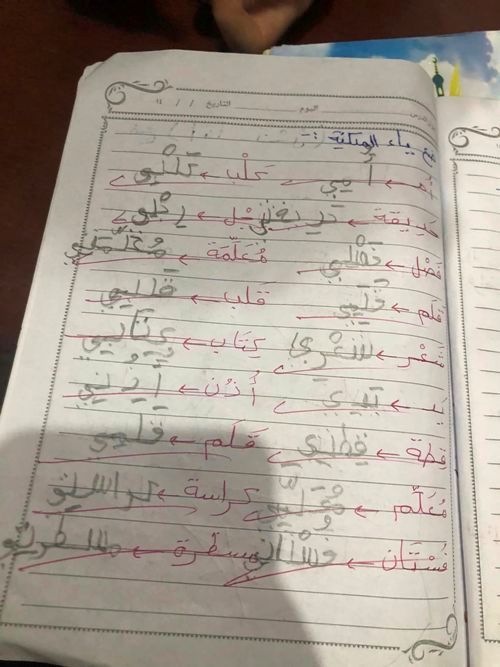 اليوم التاريخ / /
ياء الملكية :-
أم ← أمي كَلْب ← كَلْبي
حديقة ← حديقتي رِجْل ← رِجْلي
فَصْل ← فَصْلي مُعَلِّمَة ← مُعَلِّمَتي
قلم ← قَلَمي قَلب ← قَلبي
شَعْر ← شَعْري كِتَاب ← كِتَابي
يَد ← يَدي أُذُن ← أُذُني
قطة ← قِطَتي قَلَم ← قَلَمي
مُعَلِّم ← كراسة ←
فُسْتَان ← فُسْتَاني مسطرة ←